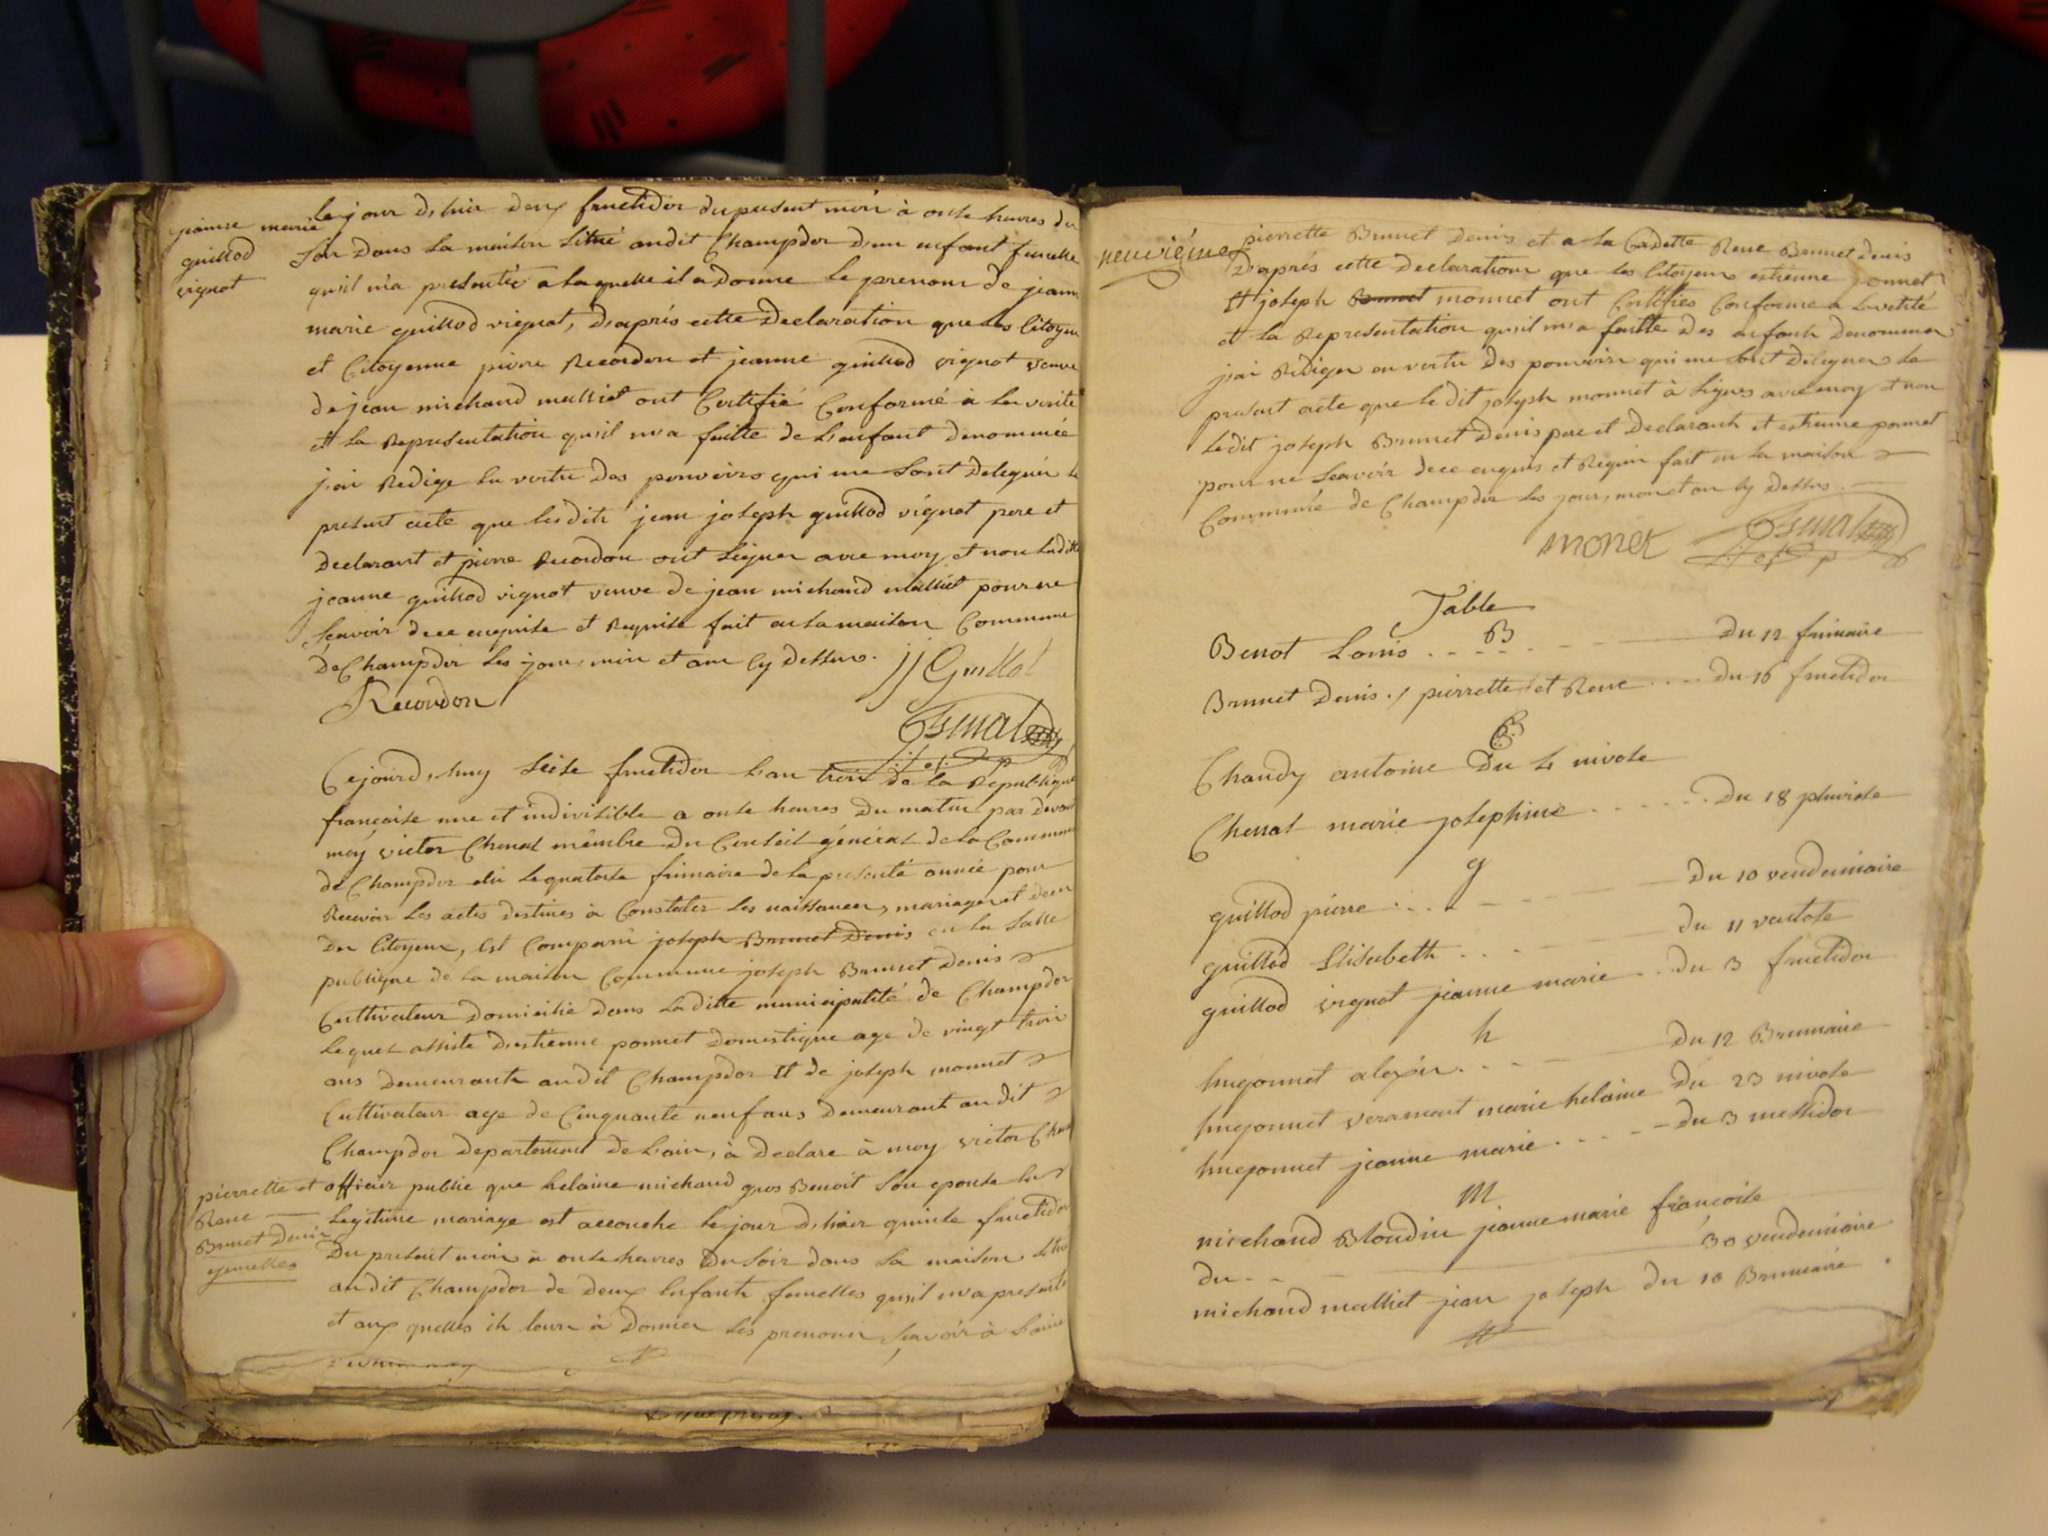 jeanne marie
guillod
vignot
le jour d'hier deux fructidor du present mois à onze heures du
soir dans la maison situé audit Champdor d'un enfant femelle
qu'il m'a presentée a laquelle il a donné le prenom de jeanne
marie guillod vignot, d'aprés cette declaration que les Citoyen
et Citoyenne pierre Recordon et jeanne guillod vignot veuve
de jean michaud malliet ont Certifié Conforme à la verité
et la Representation qu'il m'a faitte de l'enfant denommée
j'ai Redigé en vertu des pouvoirs qui me sont delegués le
present acte que lesdits jean joseph guillod vignot pere et
declarant et pierre Recordon ont signer avec moy et non laditte
jeanne guillod vignot veuve de jean michaud malliet pour ne
scavoir de ce enquise et Requise fait en la maison Commune
de Champdor les jour, mois et an cy dessus.
JJ Guillot
Recordon
Cejourd'huy seize fructidor l'an trois de la Republique
francaise une et indivisible a onze heures du matin par devant
moy victor Chenal membre du Conseil général de la Commune
de Champdor elu le quatorze frimaire de la presente année pour
Recevoir les actes destines à Constater les naissances, mariages et deces
des Citoyens, est Comparu joseph Brunet Denis en la salle
publique de la maison Commune joseph Brunet Denis
Cultivateur domicilié dans laditte municipalité de Champdor
lequel assisté d'estienne ponnet domestique age de vingt trois
ans demeurants audit Champdor et de joseph monnet
Cultivateur age de Cinquante neuf ans demeurant audit
Champdor departement de l'ain, à declare à moy victor Chenal
pierrette et
Rene
Brunet Denis
gemelles
officier public que helaine michaud gros Benoit son epouse en
legitime mariage est accouche le jour d'hier quinze fructidor
du present mois à onze heures du soir dans sa maison située
audit Champdor de deux Enfants femelles qu'il m'a presenté
et aux quelles il leurs à donner les prenoms, scavoir à l'ainé
neuviéme
pierrette Brunet Denis et a la Cadette Rene Brunet Denis
d'aprés cette declaration que les Citoyens estienne ponnet
et joseph Brunet monnet ont Certifiés Conforme a la verité
et la Representation qu'il m'a faitte des enfants denommés
j'ai Rediger en vertu des pouvoirs qui me sont deleguer le
present acte que le dit joseph monnet à signer avec moy et non
ledit joseph Brunet Denis pere et declarant et estienne ponnet
pour ne scavoir de ce enquis et Requis fait en la maison
Commune de Champdor les jour, mois et an cy dessus.
monet
Table
B
Benot Louis du 12 frimaire
Brunet Denis / pierrette et Rene du 16 fructidor
C
Chaudy antoine du 4 nivose
Chenal marie josephine du 18 pluviose
g
guillod pierre du 10 vendemiaire
guillod Elisabeth du 11 ventose
guillod vignot jeanne marie du 3 fructidor
h
hugonnet alexis du 12 Brumaire
hugonnet veramont marie helaine du 23 nivose
hugonnet jeanne marie du 3 messidor
M
michaud Blondin jeanne marie francoise
du 30 vendemiaire
michaud malliet jean joseph du 10 Brumaire